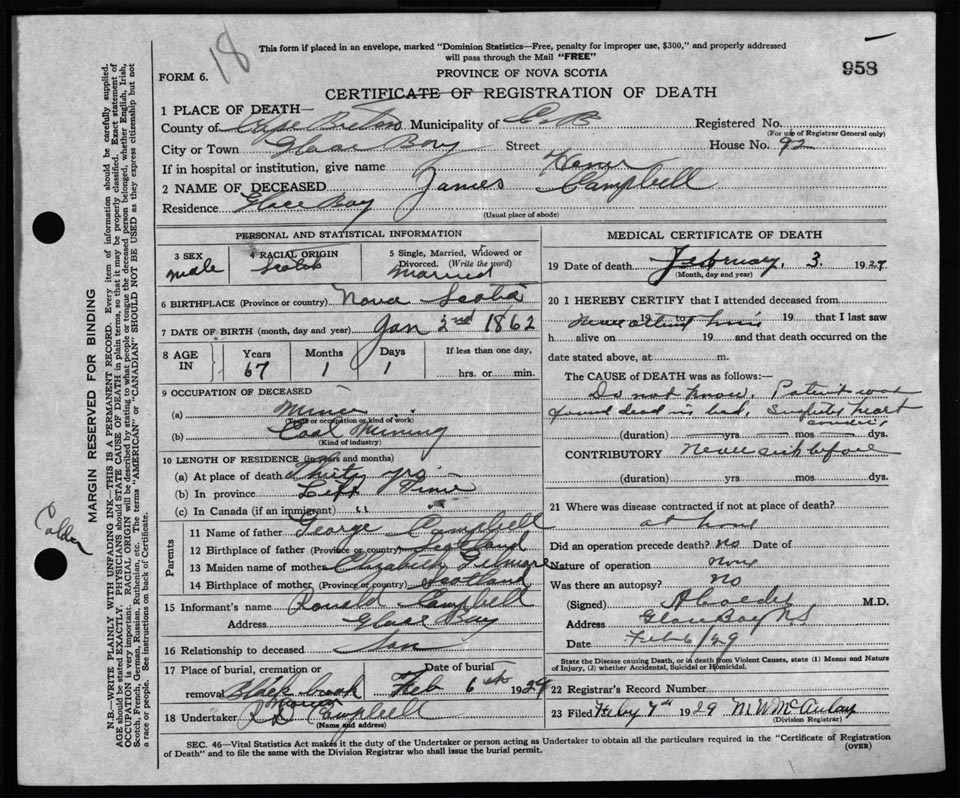 18
This form if placed in an envelope, marked "Dominion Statistics—Free, penalty for improper use, $300," and properly addressed
will pass through the Mail "FREE"
958
FORM 6.
PROVINCE OF NOVA SCOTIA
CERTIFICATE OF REGISTRATION OF DEATH
1 PLACE OF DEATH—
County of Cape Breton Municipality of C.B. Registered No.
(For use of Registrar General only)
City or Town Glace Bay Street House No. 92
If in hospital or institution, give name
2 NAME OF DECEASED James Campbell
Residence Glace Bay
(Usual place of abode)
PERSONAL AND STATISTICAL INFORMATION
3 SEX
male
4 RACIAL ORIGIN
Scotch
5 Single, Married, Widowed or
Divorced. (Write the word)
Married
6 BIRTHPLACE (Province or country) Nova Scotia
7 DATE OF BIRTH (month, day and year) Jan 2nd 1862
8 AGE IN
Years
67
Months
1
Days
1
If less than one day,
hrs. or min.
9 OCCUPATION OF DECEASED
(a) Miner
(Trade or occupation or kind of work)
(b) Coal Mining
(Kind of industry)
10 LENGTH OF RESIDENCE (in years and months)
(a) At place of death Thirty yrs
(b) In province Life Time
(c) In Canada (if an immigrant) " "
Parents
11 Name of father George Campbell
12 Birthplace of father (Province or country) Scotland
13 Maiden name of mother Elizabeth Gilmore
14 Birthplace of mother (Province or country) Scotland
15 Informant's name Ronald Campbell
Address Glace Bay
16 Relationship to deceased Son
17 Place of burial, cremation or
removal Black brook
Date of burial
Feb 6th 1929
18 Undertaker Campbell
(Name and address)
MEDICAL CERTIFICATE OF DEATH
19 Date of death February, 3 1929
(Month, day and year)
20 I HEREBY CERTIFY that I attended deceased from
Never attend him 19 to 19 that I last saw
h alive on 19 and that death occurred on
the date stated above, at m.
The CAUSE of DEATH was as follows:—
Do not know. Patient was
found dead in bed, heart
(duration) yrs mos dys.
CONTRIBUTORY Never sick before
(duration) yrs mos dys.
21 Where was disease contracted if not at place of death?
at home
Did an operation precede death? no Date of
Nature of operation none
Was there an autopsy? no
(Signed) M.D.
Address Glace Bay NS
Date Feb 6/29
State the Disease causing Death, or in death from Violent Causes, state (1) Means and Nature
of Injury, (2) whether Accidental, Suicidal or Homicidal.
22 Registrar's Record Number
23 Filed Feby 7th 1929 M W McAulay
(Division Registrar)
SEC. 46—Vital Statistics Act makes it the duty of the Undertaker or person acting as Undertaker to obtain all the particulars required in the "Certificate of Registration
of Death" and to file the same with the Division Registrar who shall issue the burial permit.
(OVER)
MARGIN RESERVED FOR BINDING
N.B.—WRITE PLAINLY WITH UNFADING INK—THIS IS A PERMANENT RECORD. Every item of information should be carefully supplied.
AGE should be stated EXACTLY. PHYSICIANS should STATE CAUSE OF DEATH in plain terms, so that it may be properly classified. Exact statement of
OCCUPATION is very important. RACIAL ORIGIN will be described by stating to what people or tongue the deceased person belonged, whether English, Irish,
Scotch, French, German, Russian, Ruthenian, etc. The terms "AMERICAN" or "CANADIAN" SHOULD NOT BE USED as they express citizenship but not
a race or people. See instructions on back of Certificate.